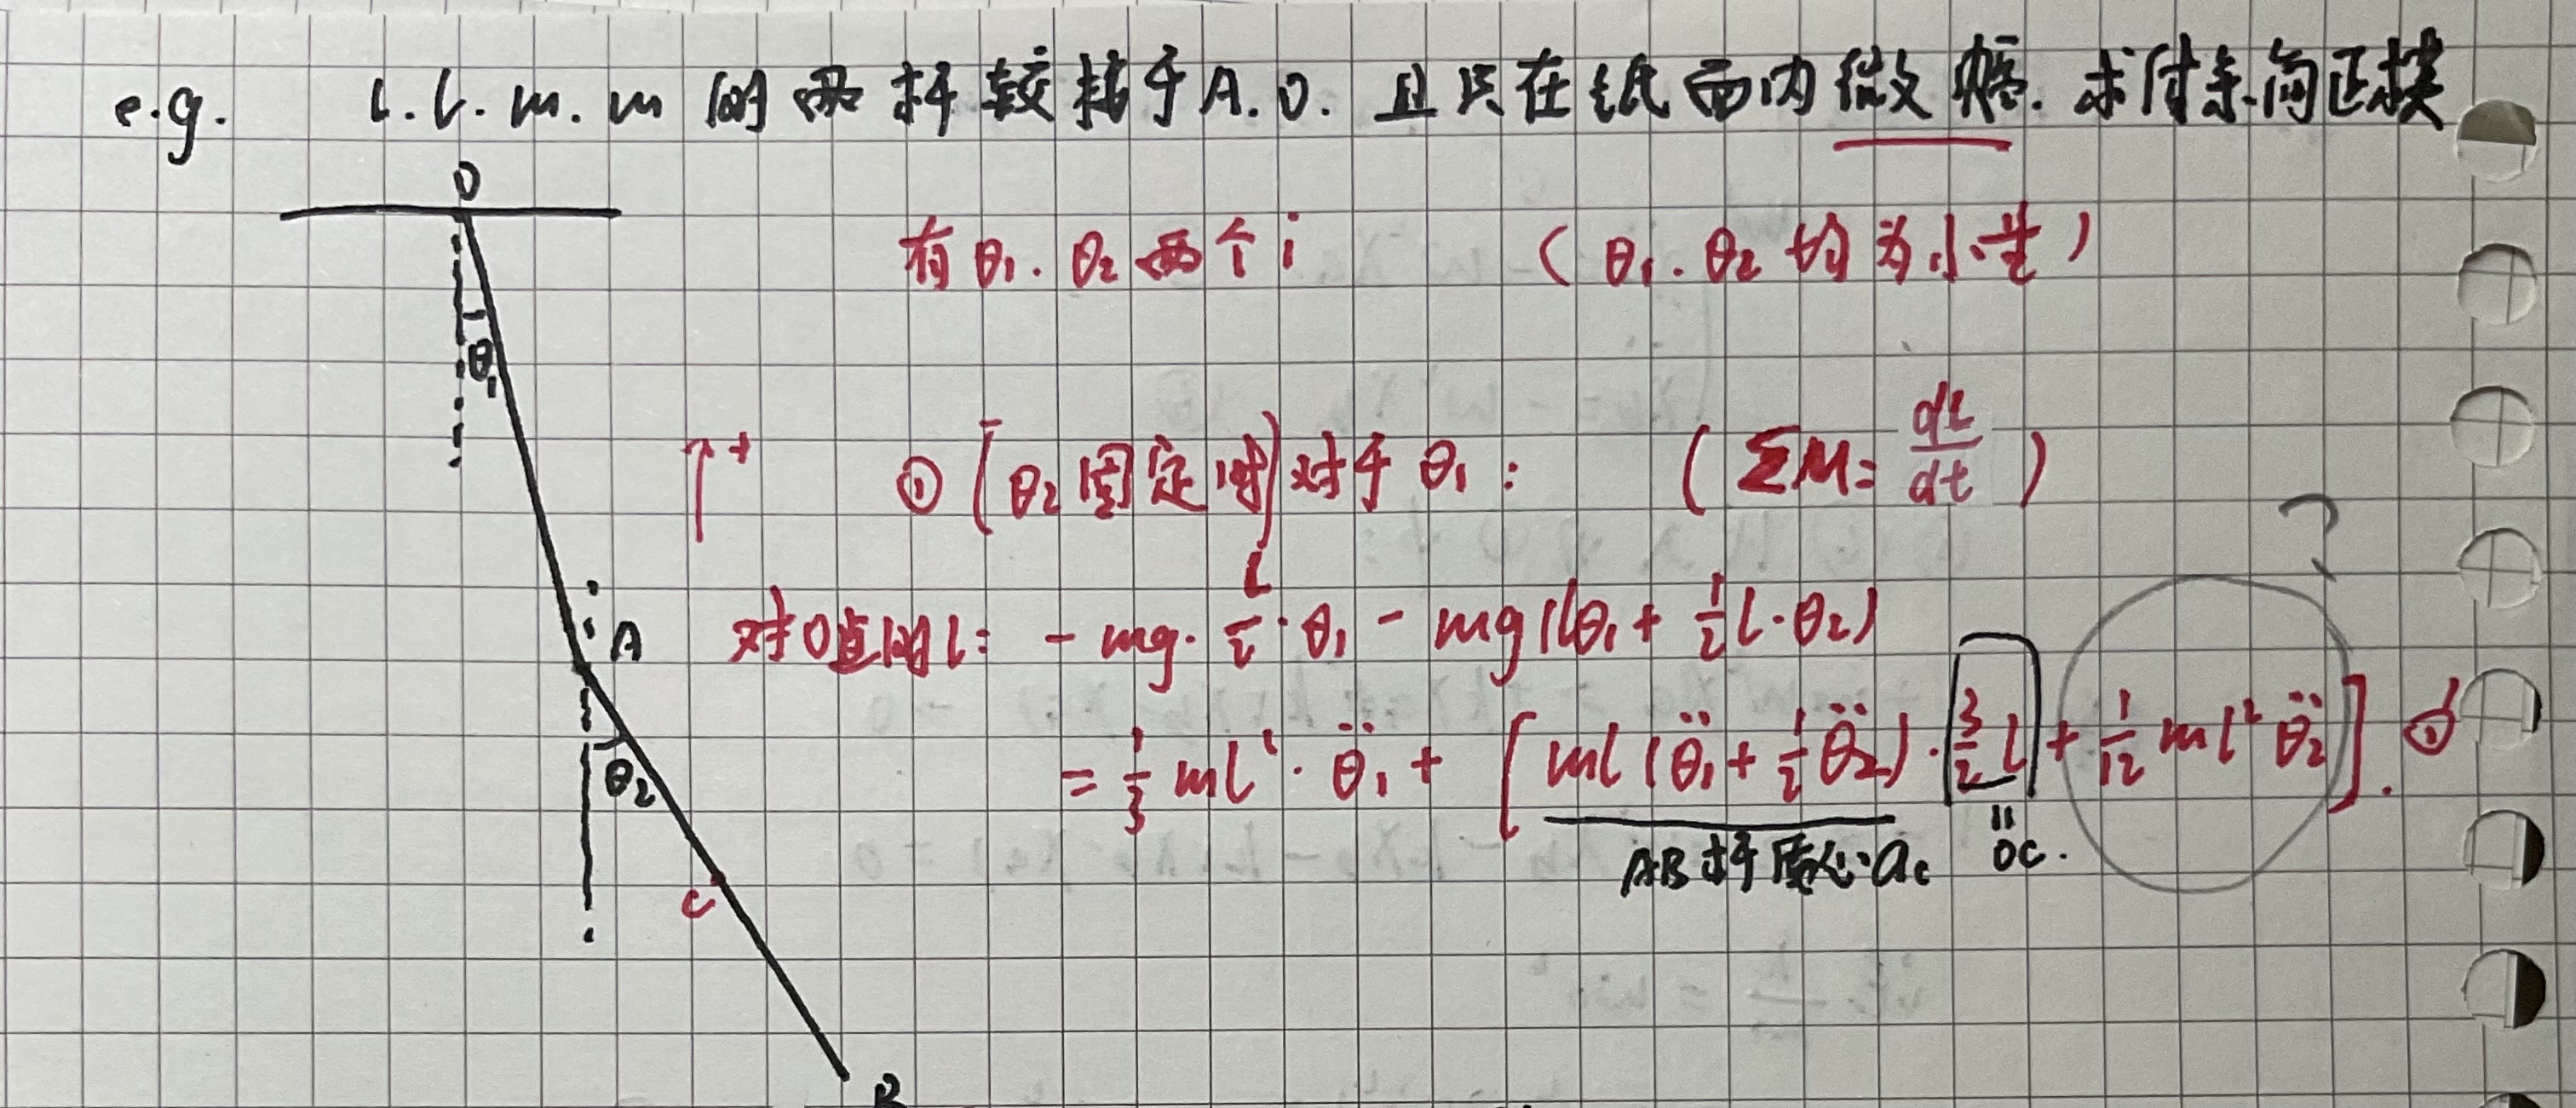 e.g. l. l. m. m 的两杆铰接于A.O. 且只在纸面内微幅. 求体系简正模
O
有 θ₁. θ₂ 两个 i （θ₁. θ₂ 均为小量）
θ₁
↑+ ① (θ₂固定时)对于 θ₁： (ΣM = dL/dt)
?
A
对O点的L: - mg · l/2 · θ₁ - mg(lθ₁ + 1/2 l · θ₂)
= 1/3 ml² · θ̈₁ + [ml(θ̈₁ + 1/2 θ̈₂) · 3/2 l + 1/12 ml² θ̈₂]. ①
θ₂
AB杆质心 a_c
=
OC.
C
B